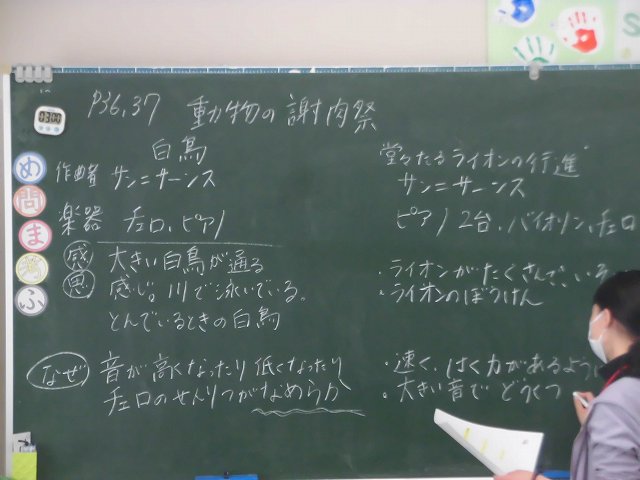 P36,37 動物の謝肉祭
白鳥
作曲者 サン=サーンス
楽器 チェロ、ピアノ
感 大きい白鳥が通る
思 感じ。川で泳いでいる。
とんでいるときの白鳥
なぜ 音が高くなったり低くなったり
チェロのせんりつがなめらか
堂々たるライオンの行進
サン=サーンス
ピアノ2台、バイオリン、チェロ
・ライオンがたくさん
・ライオンのぼうけん
・速く、はく力があるように
・大きい音で どうくつ
め
問
ま
ふ